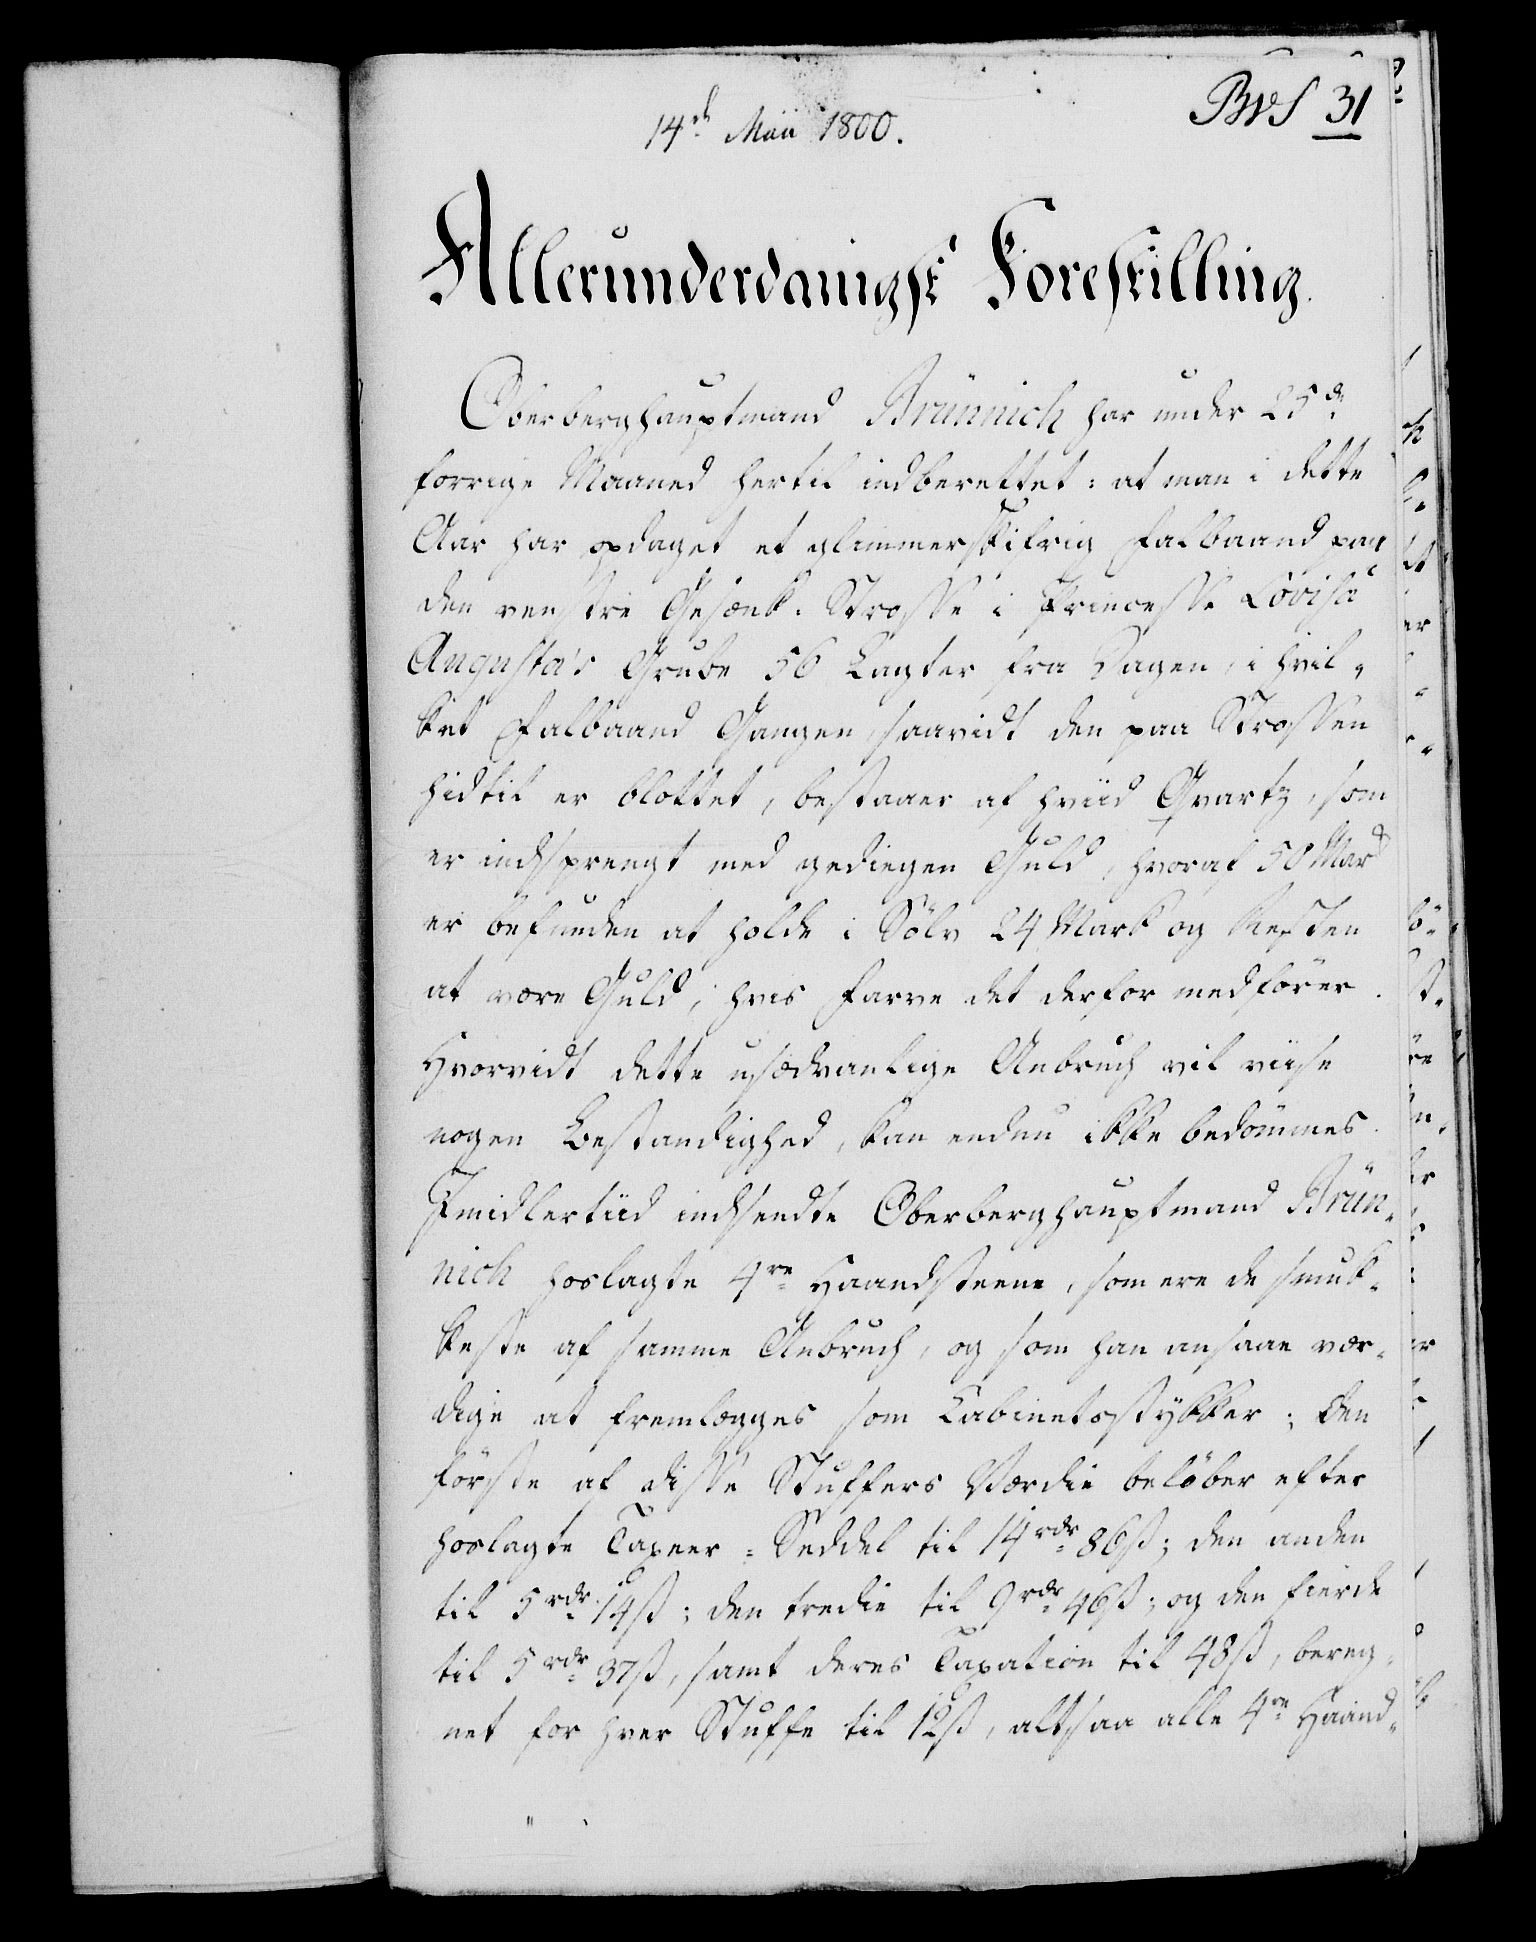 BWS 31
14d. Maii 1800.
Allerunderdanigst Forestilling.
Oberberghauptmand Brünnich har under 25de
forrige Maaned hertil indberettet: at man i dette
Aar har opdaget et glimmerskifrig Falbaand paa
den venstre Gesænk-Strosse i Princesse Lovisa
Augusta's Grube 56 Lagter fra Dagen, i hvil-
ket Falbaand Gangen, saavidt den paa Strossen
hidtil er blottet, bestaaer af hviid Qvartz, som
er indsprengt med gediegen Guld, hvoraf 50 Mark
er befunden at holde i Sölv 24 Mark og Resten
at være Guld, hvis Farve det derfor medförer.
Hvorvidt dette usædvanlige Anbruch vil viise
nogen Bestandighed, kan endnu ikke bedömmes.
Imidlertiid indsendte Oberberghauptmand Brün-
nich hoslagte 4re Haandsteene, som ere de smuk-
keste af samme Anbruch, og som han ansaae vær-
dige at fremlægges som Cabinetsstykker; den
förste af disse Stuffers Værdie belöber efter
hoslagte Taxeer-Seddel til 14 rdr. 86 ß; den anden
til 5 rdr. 14 ß; den tredie til 9 rdr. 46 ß; og den fierde
til 5 rdr. 37 ß, samt deres Taxation til 48 ß, bereg-
net for hver Stuffe til 12 ß, altsaa alle 4re Haand-